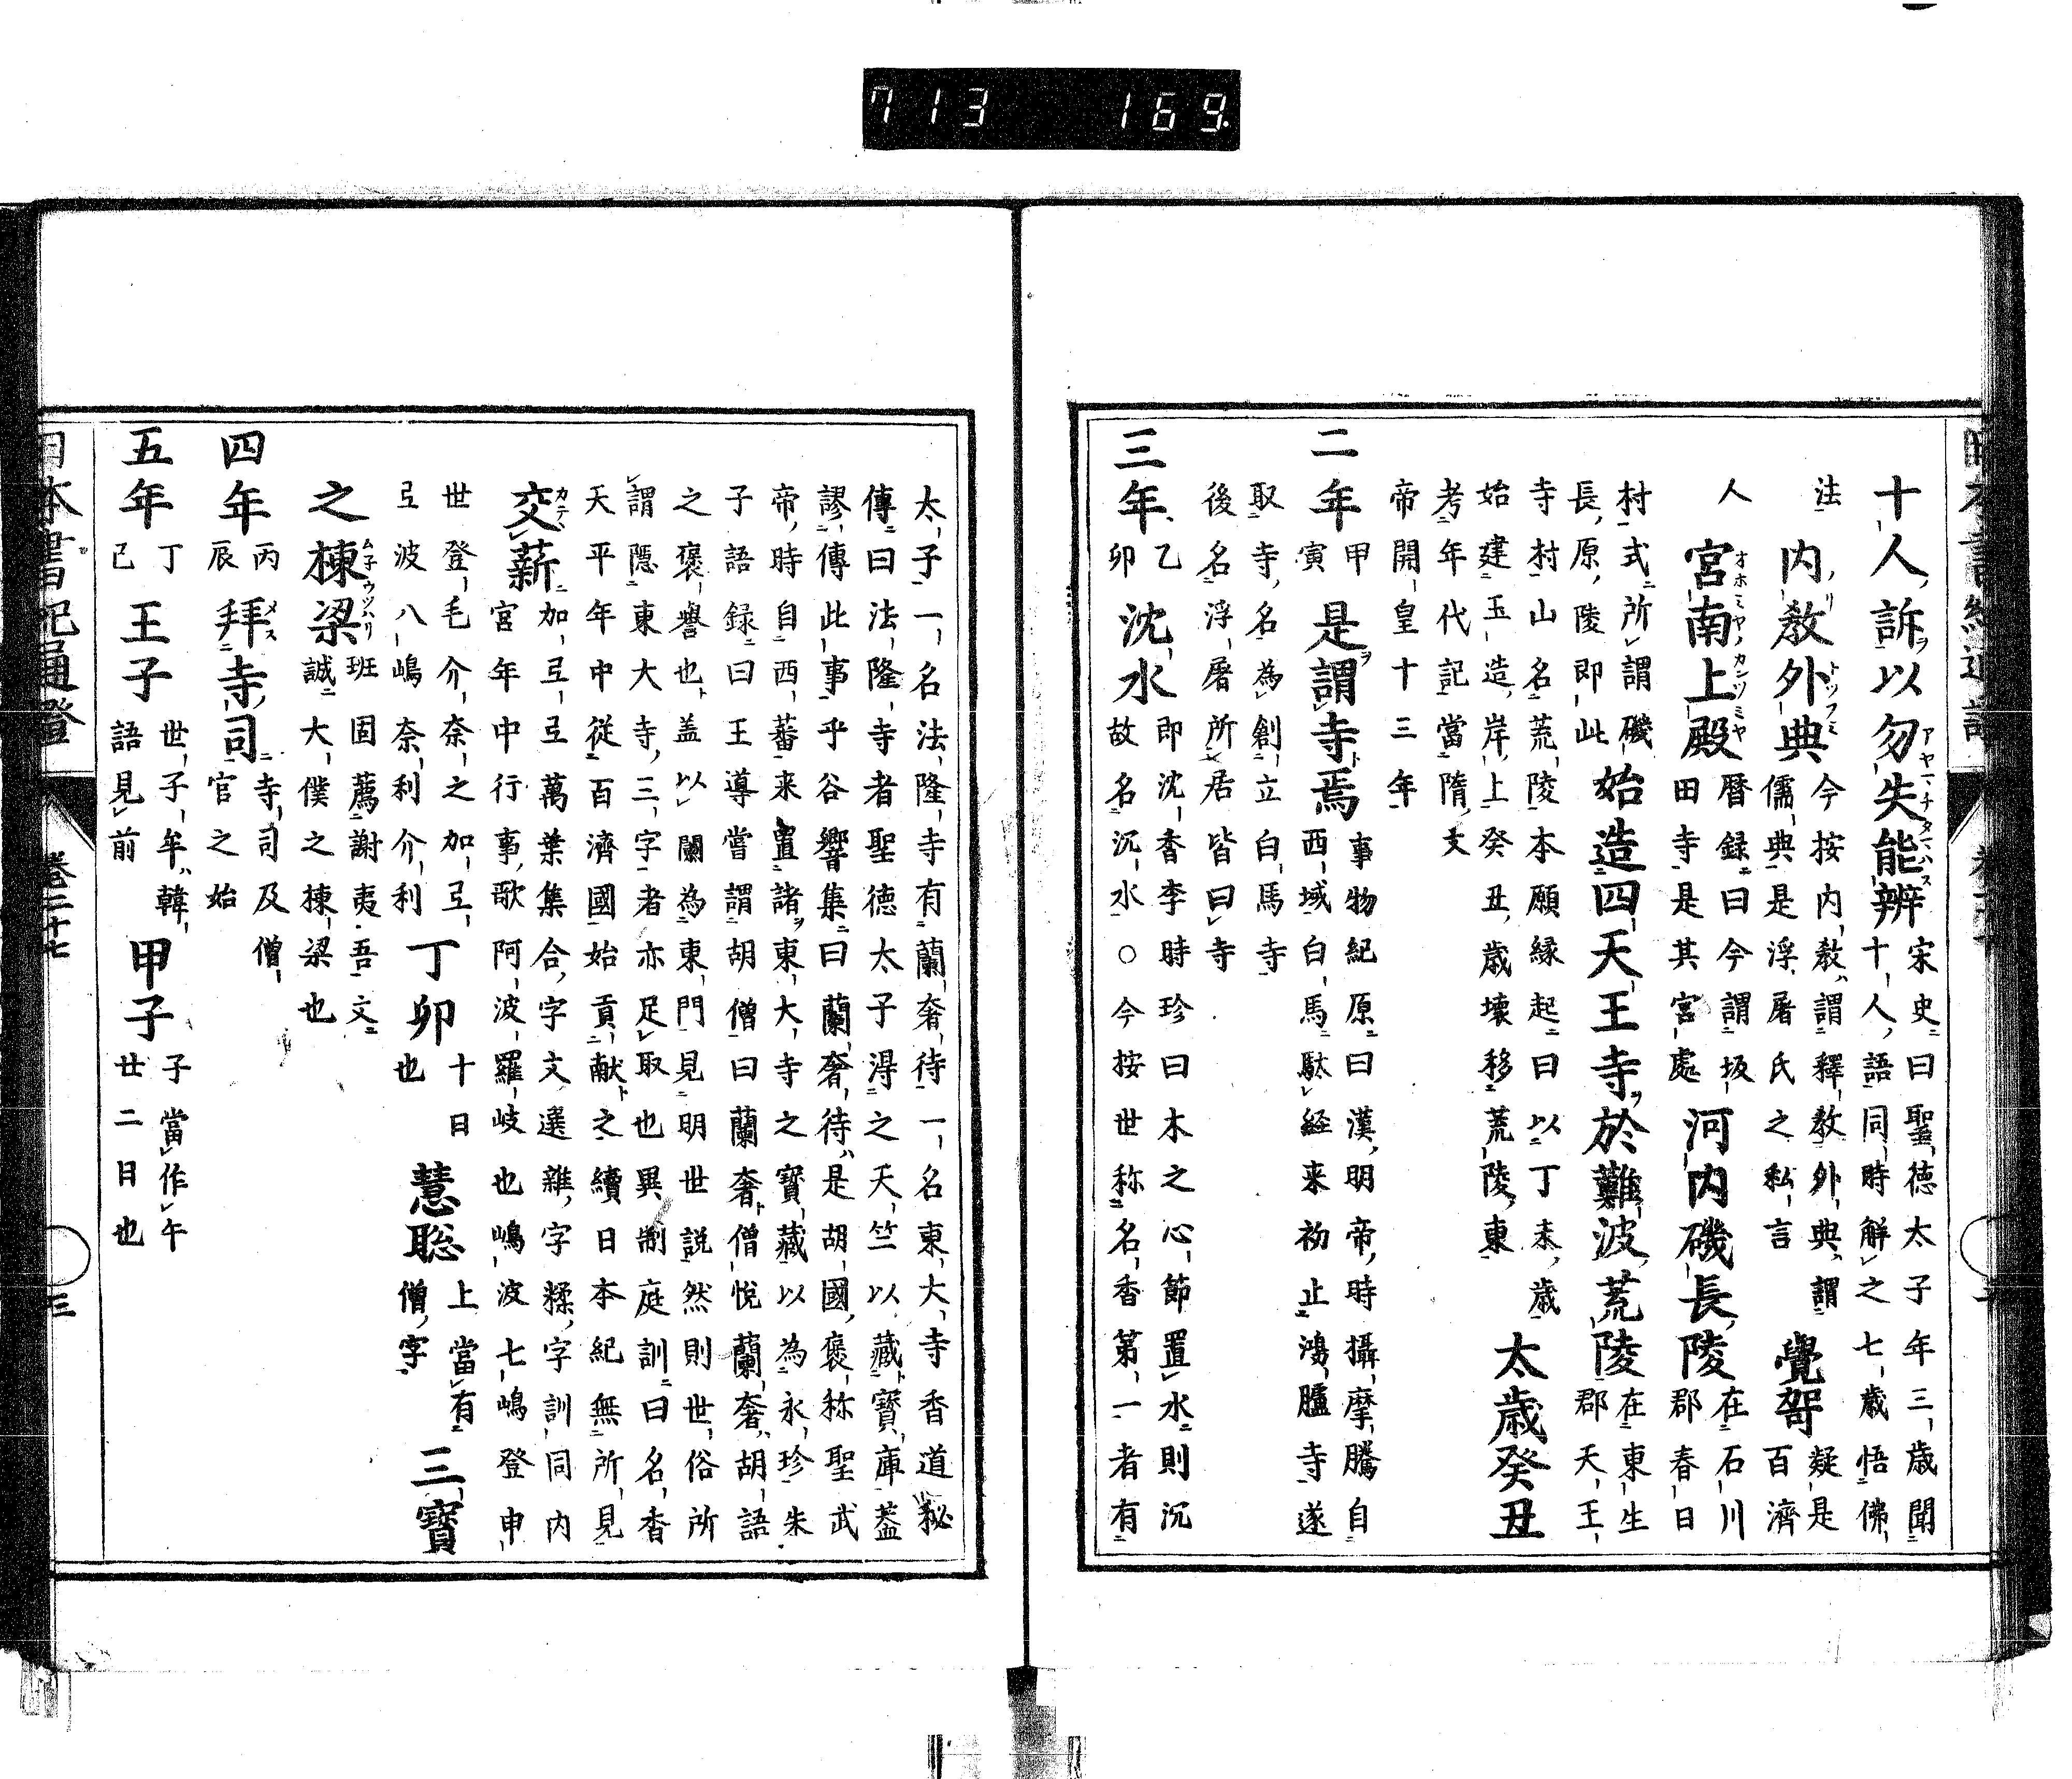 713 169
十人訴以勿失能辨 宋史曰聖徳太子年三歳聞
十人語同時解之七歳悟佛
法 内教外典 今按内教謂釋教外典謂
儒典是浮屠氏之私言 覺哿 疑是
百濟
人 宮南上殿 暦録曰今謂坂
田寺是其宮處 河内磯長陵 在石川
郡春日
村式所謂磯
長原陵即此 始造四天王寺於難波荒陵 在東生
郡天王
寺村山名荒陵本願縁起曰以丁未歳
始建玉造岸上癸丑歳壞移荒陵東 太歳癸丑
考年代記當隋文
帝開皇十三年
二年 甲寅 是謂寺焉 事物紀原曰漢明帝時攝摩騰自
西域白馬駄経来初止鴻臚寺遂
取寺名為創立白馬寺
後名浮屠所居皆曰寺
三年 乙卯 沈水 即沈香李時珍曰木之心節置水則沉
故名沉水○今按世称名香第一者有
太子一名法隆寺有蘭奢待一名東大寺香道秘
傳曰法隆寺者聖徳太子得之天竺以藏寶庫蓋
謬傳此事乎谷響集曰蘭奢待是胡國褒称聖武
帝時自西蕃来置諸東大寺之寳藏以為永珍朱
子語録曰王導嘗謂胡僧曰蘭奢僧悦蘭奢胡語
之褒譽也盖以闌為東門見明世説然則世俗所
謂隠東大寺三字者亦足取也異制庭訓曰名香
天平年中從百濟國始貢献之續日本紀無所見
交薪 加弖弖萬葉集合字文選雜字糅字訓同内
宮年中行事歌阿波羅岐也嶋波七嶋登申
世登毛介奈之加弖
弖波八嶋奈利介利 丁卯 十日
也 慧聡 上當有
僧字 三寶
之棟梁 班固薦謝夷吾文
誠大僕之棟梁也
四年 丙辰 拜寺司 寺司及僧
官之始
五年 丁己 王子 世子牟韓
語見前 甲子 子當作午
廿二日也
日本書紀通證 卷二十七 三